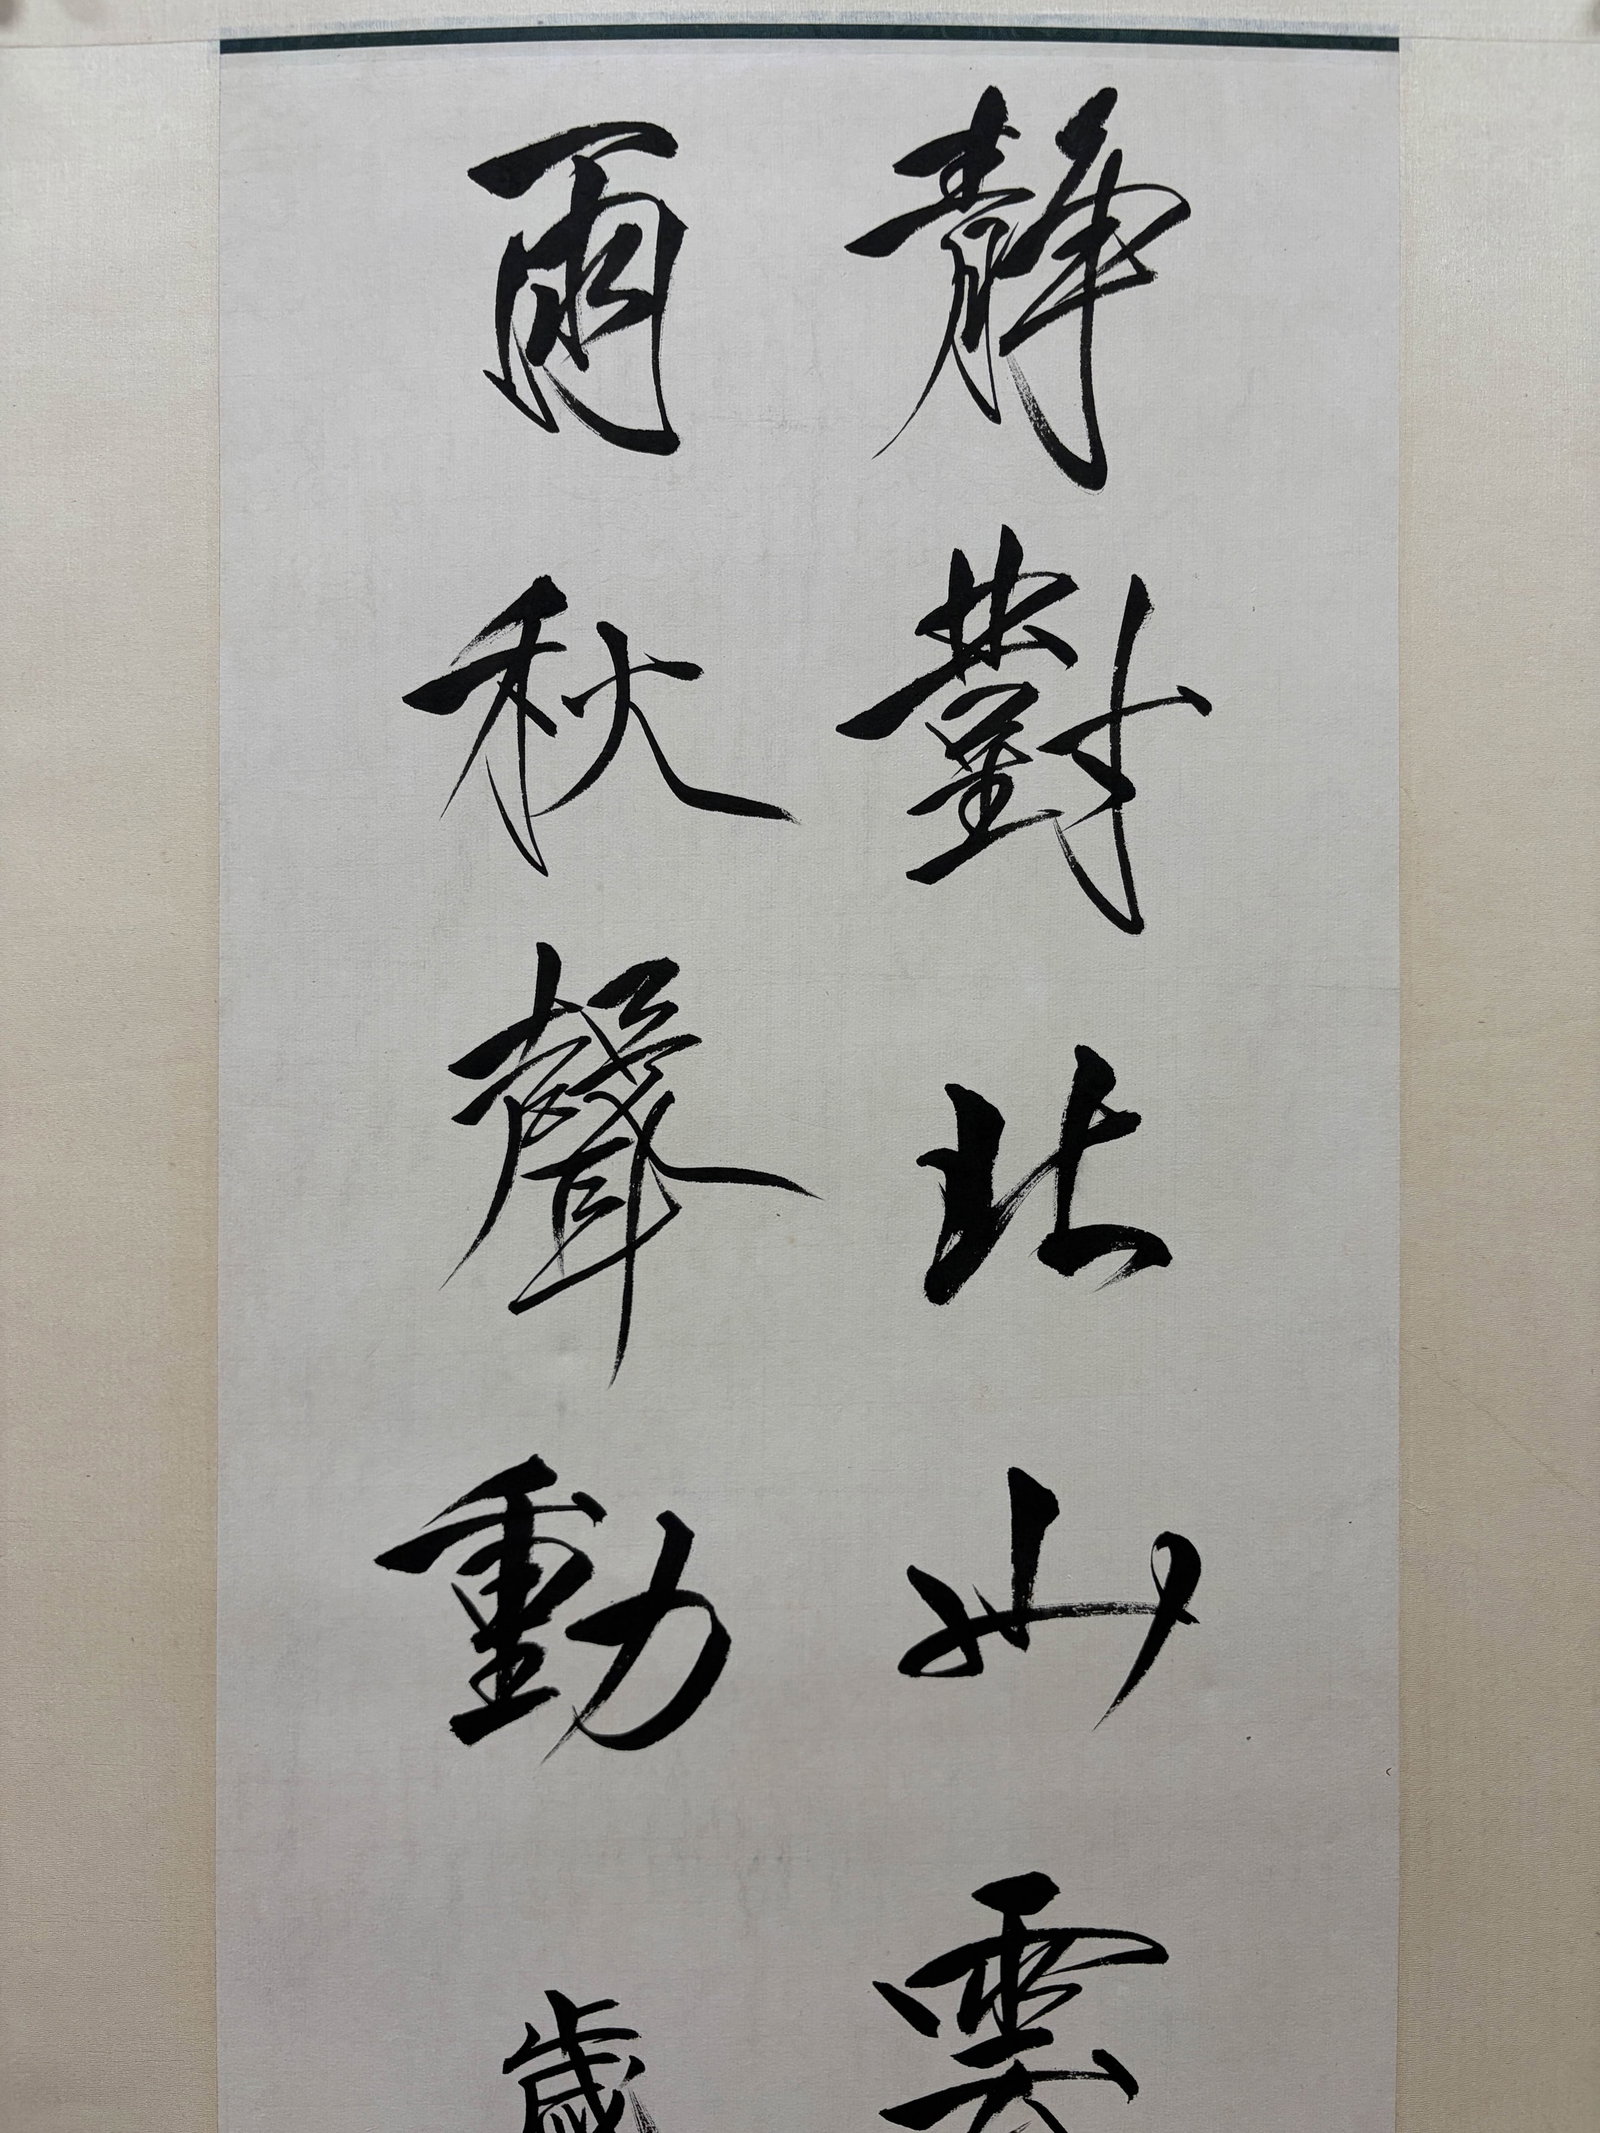 靜對北山雲
雨秋聲動歲